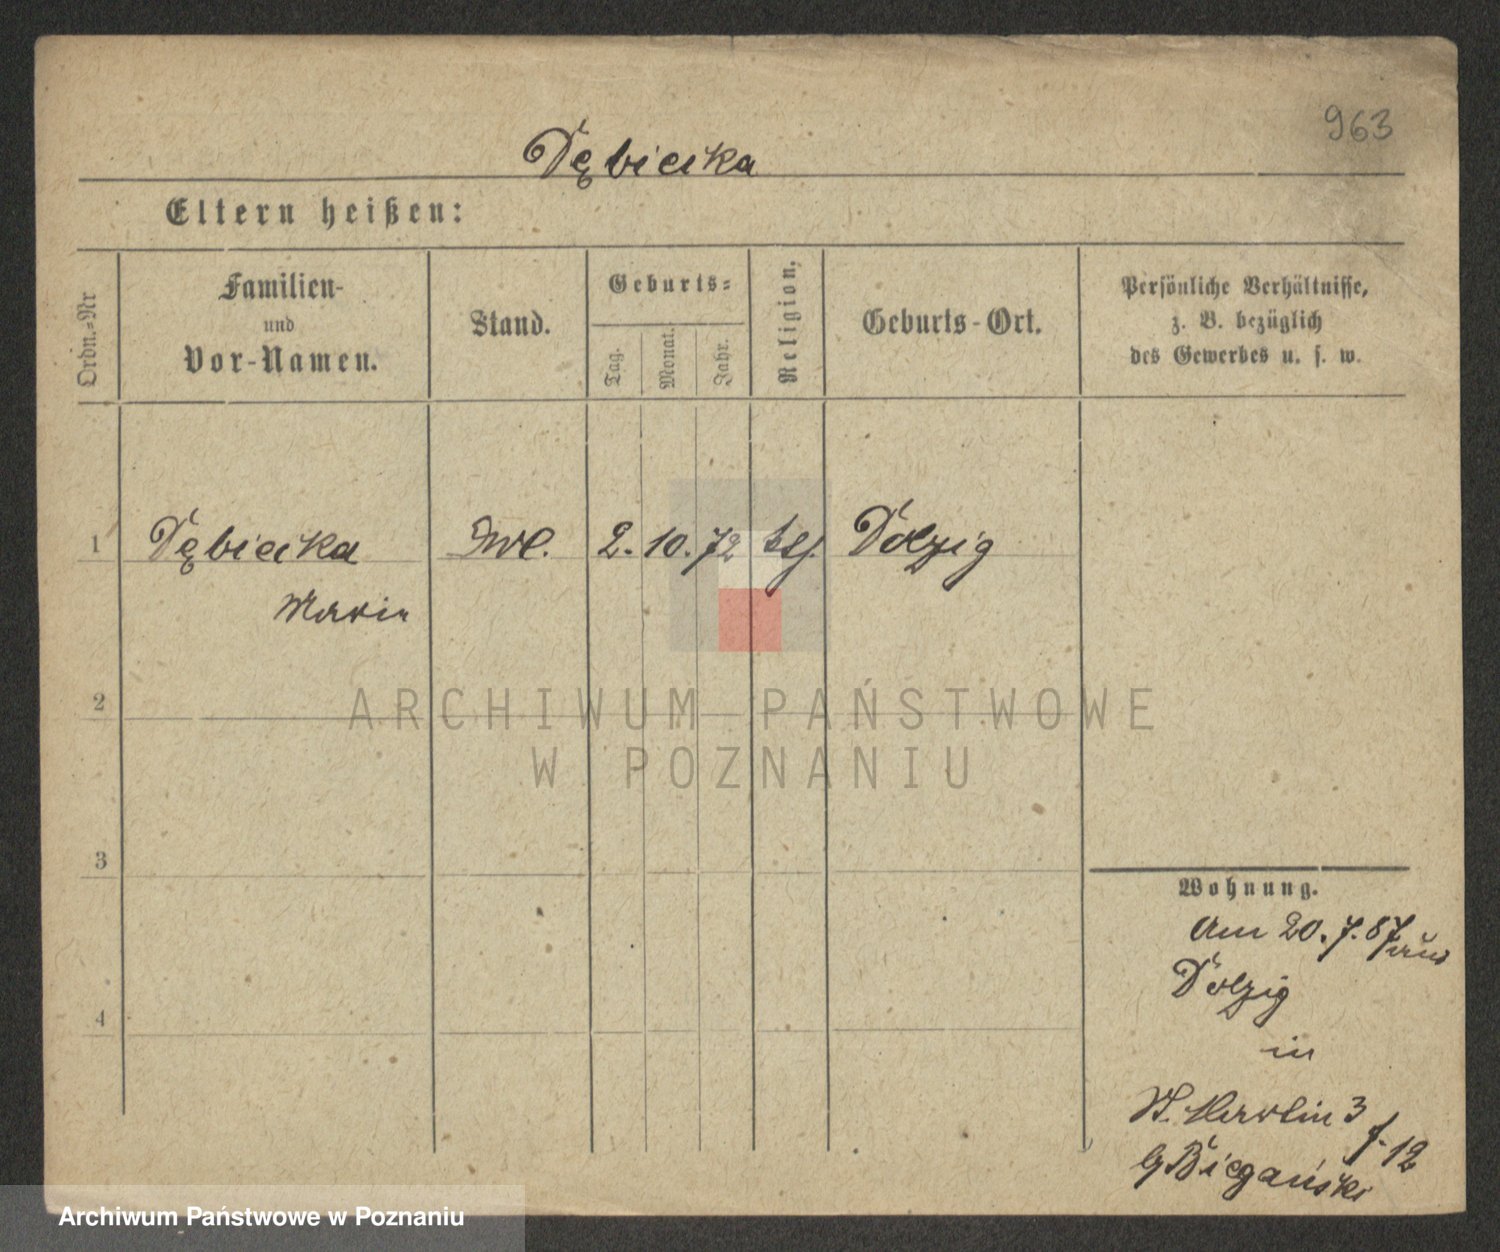 963
Dębicka
Eltern heißen:
Ordn.=Nr
Familien-
und
Vor-Namen.
Stand.
Geburts=
Tag.
Monat.
Jahr.
Religion,
Geburts-Ort.
Persönliche Verhältnisse,
z. B. bezüglich
des Gewerbes u. s. w.
1 Dębicka 2. 10. 72 Dolzig
Maria
2
ARCHIWUM PAŃSTWOWE
W POZNANIU
3
Wohnung.
Am 20. 7. 87 aus
Dolzig
4
in
St. Martin 3
f. 12
Biegański
Archiwum Państwowe w Poznaniu